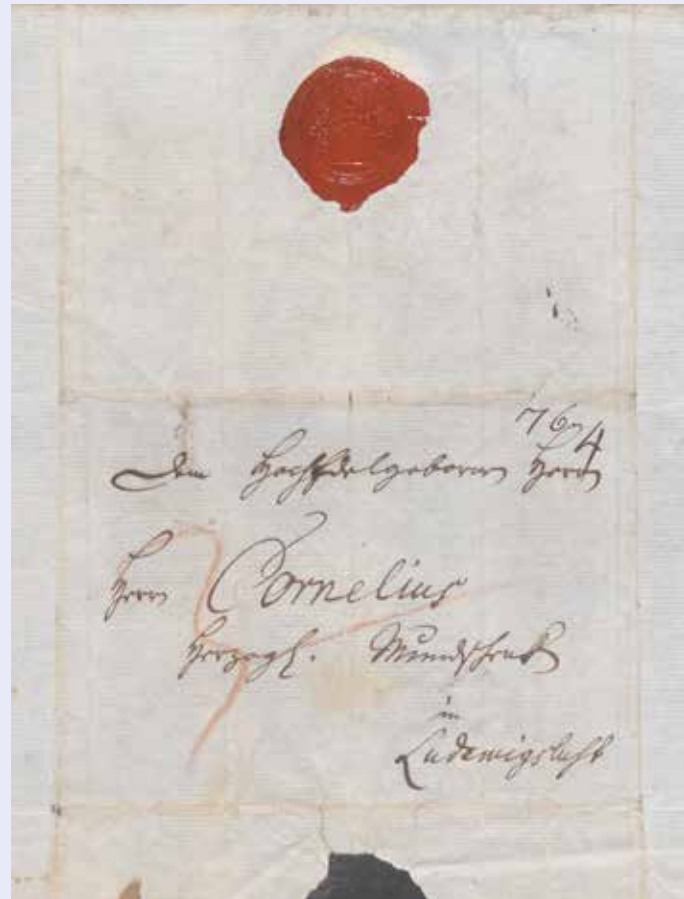 7674
Dem Hochedelgebornen Herrn
Herrn Cornelius
Herzogl. Mundschenk
in
Ludewigslust